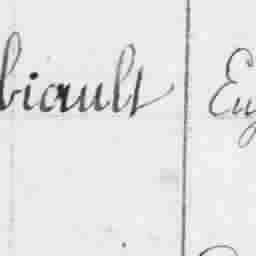 biault Eug